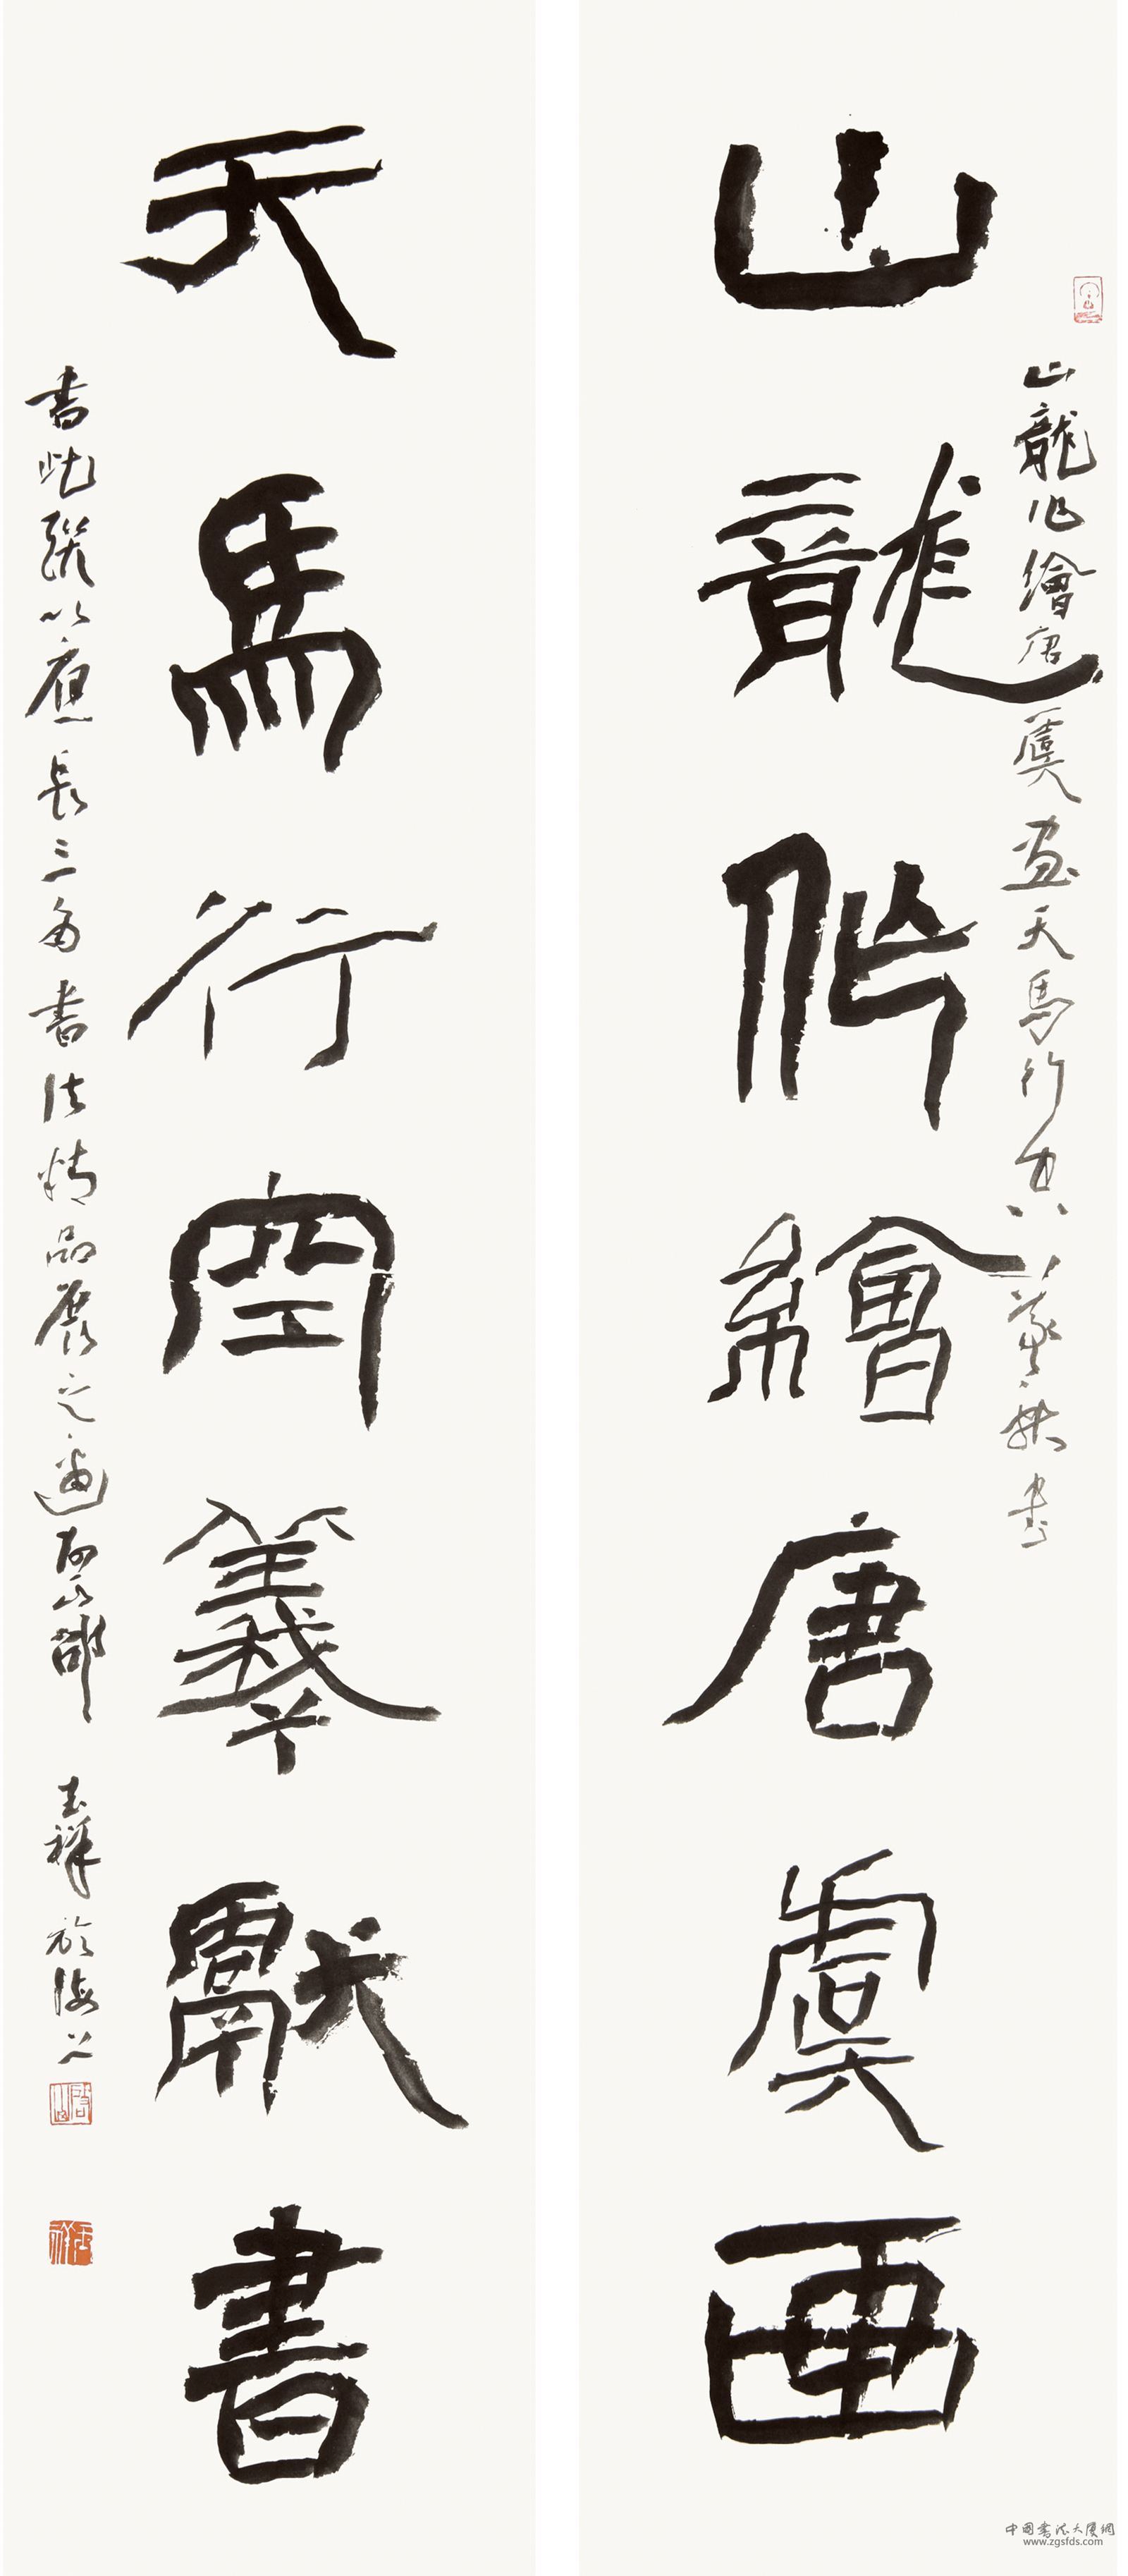 山龍作繪唐虞画
山龍作繪唐虞畫天馬行空羲獻書
天馬行空羲獻書
書此聯以應長三角書法精品展之
玉祥於海上
中國書法大廈網
www.zgsfds.com